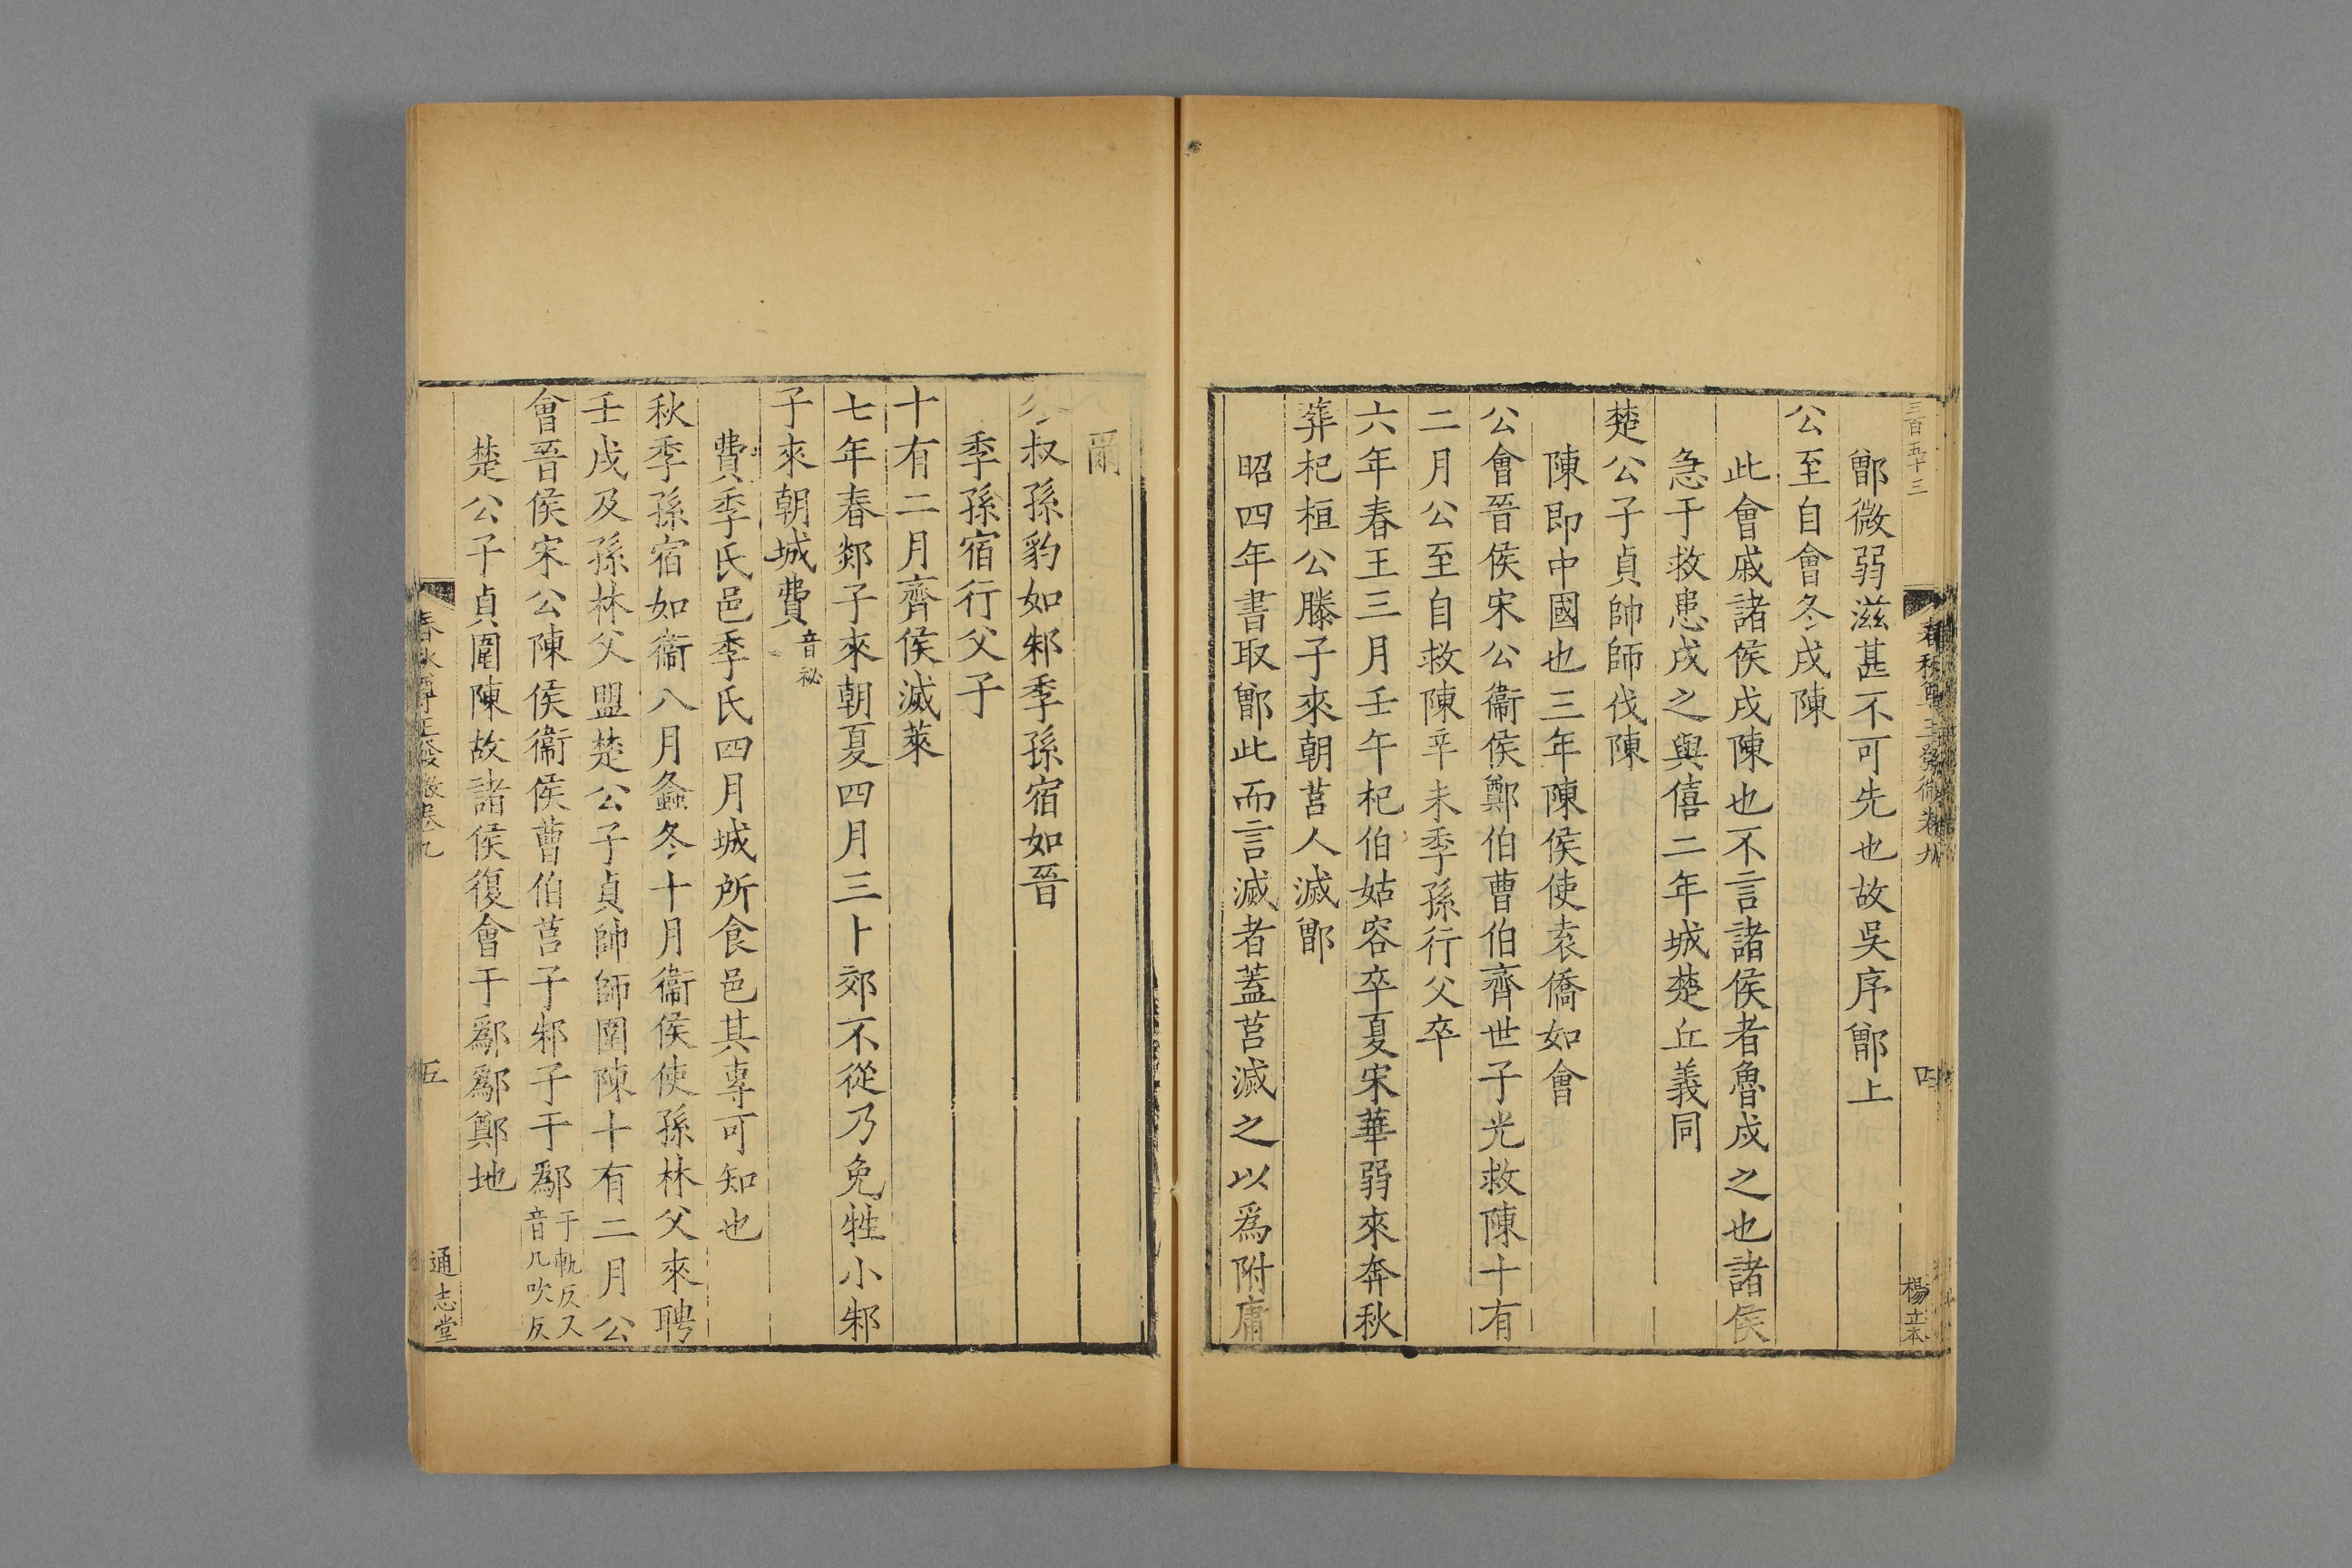 三百五十三
春秋尊王發微卷九
四
楊立本
鄫微弱滋甚不可先也故吳序鄫上
公至自會冬戍陳
此會戚諸侯戍陳也不言諸侯者魯戍之也諸侯
急于救患戍之與僖二年城楚丘義同
楚公子貞帥師伐陳
陳即中國也三年陳侯使袁僑如會
公會晉侯宋公衞侯鄭伯曹伯齊世子光救陳十有
二月公至自救陳辛未季孫行父卒
六年春王三月壬午杞伯姑容卒夏宋華弱來奔秋
葬杞桓公滕子來朝莒人滅鄫
昭四年書取鄫此而言滅者蓋莒滅之以爲附庸
爾
冬叔孫豹如邾季孫宿如晉
季孫宿行父子
十有二月齊侯滅萊
七年春郯子來朝夏四月三卜郊不從乃免牲小邾
子來朝城費音祕
費季氏邑季氏四月城所食邑其專可知也
秋季孫宿如衞八月螽冬十月衞侯使孫林父來聘
壬戌及孫林父盟楚公子貞帥師圍陳十有二月公
會晉侯宋公陳侯衞侯曹伯莒子邾子于鄬于軌反又音几吹反
楚公子貞圍陳故諸侯復會于鄬鄬鄭地
春秋尊王發微卷九
五
通志堂